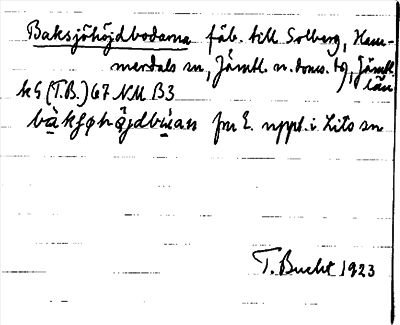 Baksjöhöjdbodarna fäb. till Solberg, Ham-
merdals sn, Jämtl. n. doms. tg, Jämtl. län
k5 (T.B.) 67 NM B3
bàkʃøhö̀jdbùan fru E. uppt. i Lits sn
T. Bucht 1923